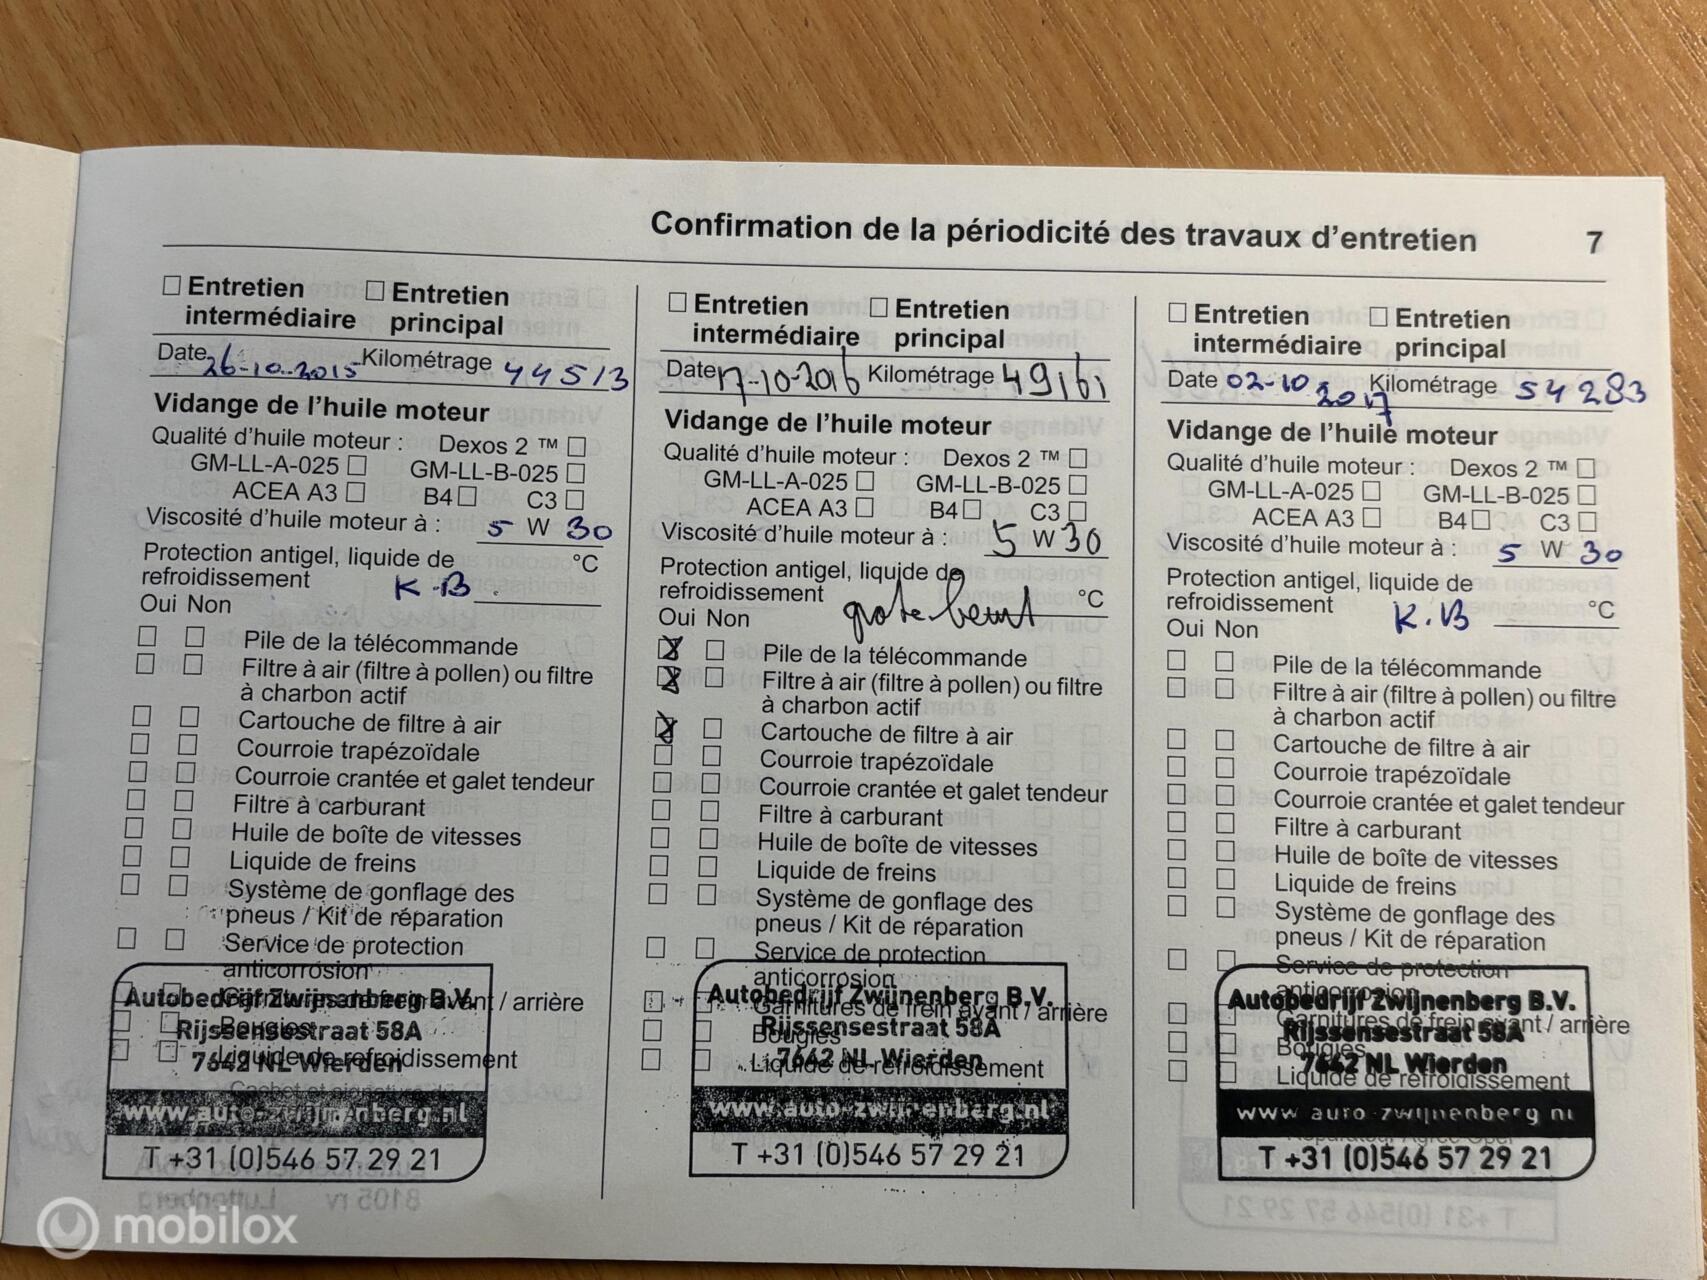 Confirmation de la périodicité des travaux d'entretien 7
☐ Entretien intermédiaire ☐ Entretien principal
Date 26-10-2015 Kilométrage 44513
Vidange de l'huile moteur
Qualité d'huile moteur : Dexos 2 ™ ☐
GM-LL-A-025 ☐ GM-LL-B-025 ☐
ACEA A3 ☐ B4 ☐ C3 ☐
Viscosité d'huile moteur à : 5 W 30
Protection antigel, liquide de
refroidissement K.B. °C
Oui Non
☐ ☐ Pile de la télécommande
☐ ☐ Filtre à air (filtre à pollen) ou filtre
à charbon actif
☐ ☐ Cartouche de filtre à air
☐ ☐ Courroie trapézoïdale
☐ ☐ Courroie crantée et galet tendeur
☐ ☐ Filtre à carburant
☐ ☐ Huile de boîte de vitesses
☐ ☐ Liquide de freins
☐ ☐ Système de gonflage des
pneus / Kit de réparation
☐ ☐ Service de protection
anticorrosion
☐ ☐ Garnitures de frein avant / arrière
☐ ☐ Bougies
☐ ☐ Liquide de refroidissement
Cachet et signature
Autobedrijf Zwijnenberg B.V.
Rijssensestraat 58A
7642 NL Wierden
www.auto-zwijnenberg.nl
T +31 (0)546 57 29 21
☐ Entretien intermédiaire ☐ Entretien principal
Date 17-10-2016 Kilométrage 49161
Vidange de l'huile moteur
Qualité d'huile moteur : Dexos 2 ™ ☐
GM-LL-A-025 ☐ GM-LL-B-025 ☐
ACEA A3 ☐ B4 ☐ C3 ☐
Viscosité d'huile moteur à : 5 W 30
Protection antigel, liquide de
refroidissement grote beurt °C
Oui Non
☒ ☐ Pile de la télécommande
☒ ☐ Filtre à air (filtre à pollen) ou filtre
à charbon actif
☒ ☐ Cartouche de filtre à air
☐ ☐ Courroie trapézoïdale
☐ ☐ Courroie crantée et galet tendeur
☐ ☐ Filtre à carburant
☐ ☐ Huile de boîte de vitesses
☐ ☐ Liquide de freins
☐ ☐ Système de gonflage des
pneus / Kit de réparation
☐ ☐ Service de protection
anticorrosion
☐ ☐ Garnitures de frein avant / arrière
☐ ☐ Bougies
☐ ☐ Liquide de refroidissement
Autobedrijf Zwijnenberg B.V.
Rijssensestraat 58A
7642 NL Wierden
www.auto-zwijnenberg.nl
T +31 (0)546 57 29 21
☐ Entretien intermédiaire ☐ Entretien principal
Date 02-10-2017 Kilométrage 54283
Vidange de l'huile moteur
Qualité d'huile moteur : Dexos 2 ™ ☐
GM-LL-A-025 ☐ GM-LL-B-025 ☐
ACEA A3 ☐ B4 ☐ C3 ☐
Viscosité d'huile moteur à : 5 W 30
Protection antigel, liquide de
refroidissement K.B °C
Oui Non
☐ ☐ Pile de la télécommande
☐ ☐ Filtre à air (filtre à pollen) ou filtre
à charbon actif
☐ ☐ Cartouche de filtre à air
☐ ☐ Courroie trapézoïdale
☐ ☐ Courroie crantée et galet tendeur
☐ ☐ Filtre à carburant
☐ ☐ Huile de boîte de vitesses
☐ ☐ Liquide de freins
☐ ☐ Système de gonflage des
pneus / Kit de réparation
☐ ☐ Service de protection
anticorrosion
☐ ☐ Garnitures de frein avant / arrière
☐ ☐ Bougies
☐ ☐ Liquide de refroidissement
Autobedrijf Zwijnenberg B.V.
Rijssensestraat 58A
7642 NL Wierden
www.auto-zwijnenberg.nl
Réparateur Agréé Opel
T +31 (0)546 57 29 21
mobilox